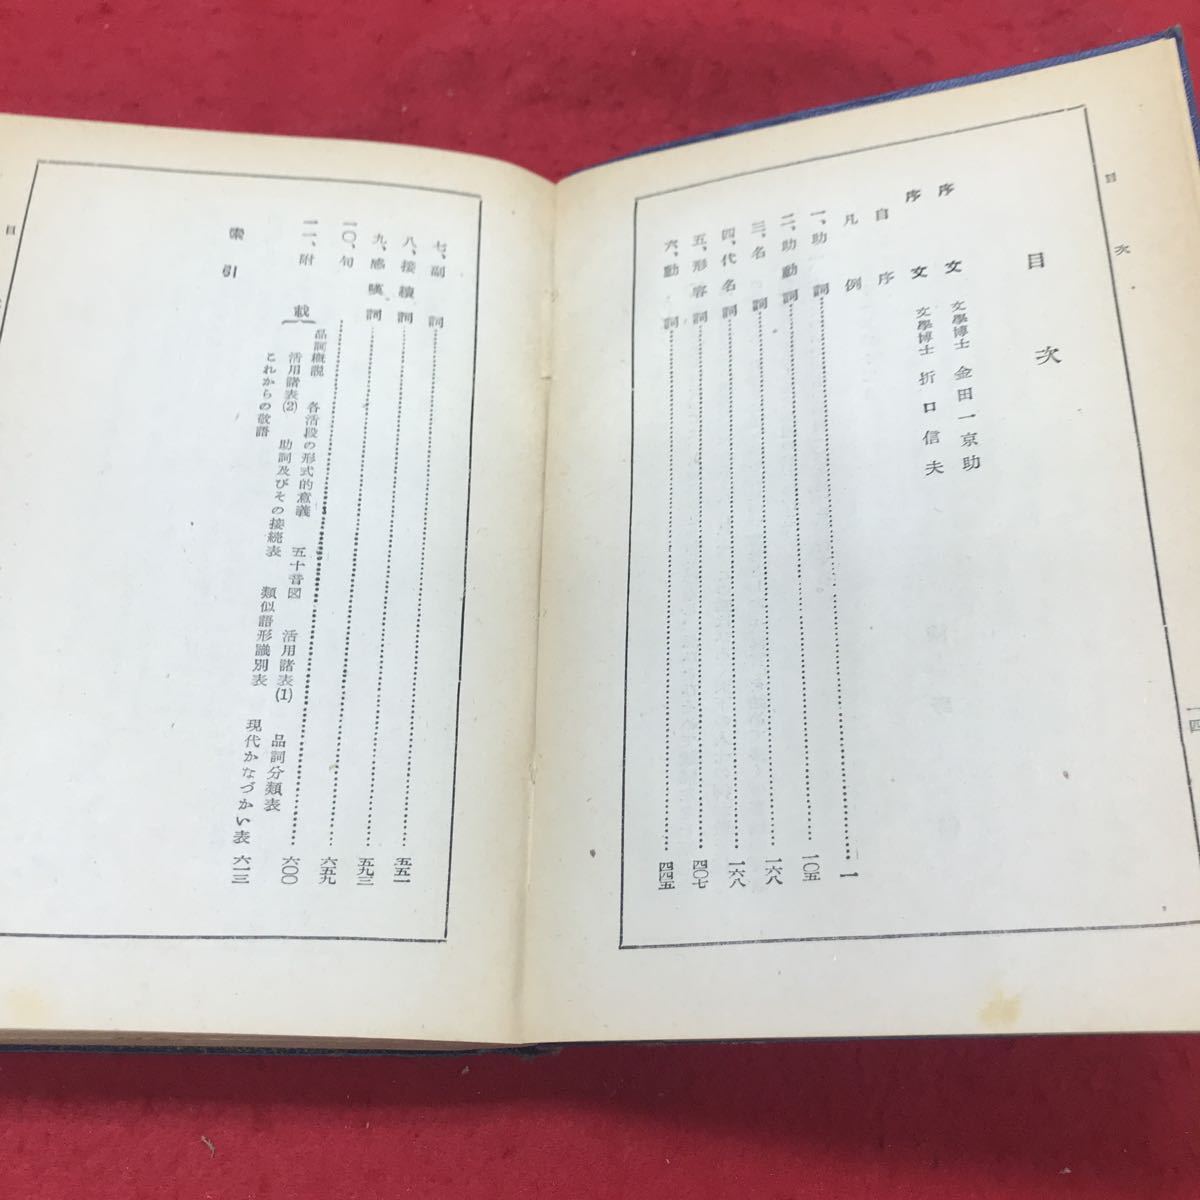 目次
一四
目次
序文 文學博士 金田一京助
序文 文學博士 折口信夫
自序
凡例
一、助詞……一
二、助動詞……一〇五
三、名詞……一六八
四、代名詞……一六八
五、形容詞……四〇七
六、動詞……四四五
七、副詞……五五一
八、接續詞……五九三
九、感嘆詞……六五九
一〇、句……六〇〇
一一、附載
品詞概説 各活段の形式的意義 五十音図 活用諸表(1) 品詞分類表
活用諸表(2) 助詞及びその接続表 類似語形識別表 現代かなづかい表
これからの敬語
索引……六一三
目